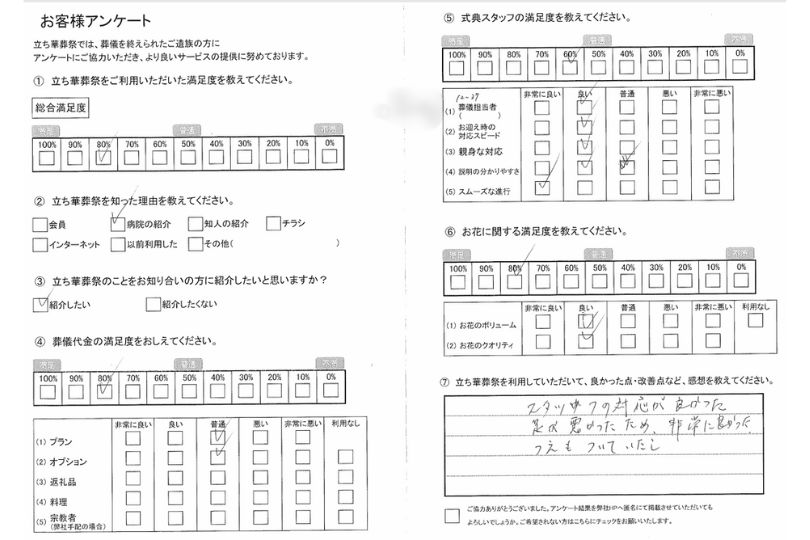 お客様アンケート
立ち華葬祭では、葬儀を終えられたご遺族の方に
アンケートにご協力いただき、より良いサービスの提供に努めております。
① 立ち華葬祭をご利用いただいた満足度を教えてください。
総合満足度
満足 普通 不満
100% 90% 80% 70% 60% 50% 40% 30% 20% 10% 0%
② 立ち華葬祭を知った理由を教えてください。
会員 病院の紹介 知人の紹介 チラシ
インターネット 以前利用した その他( )
③ 立ち華葬祭のことをお知り合いの方に紹介したいと思いますか？
紹介したい 紹介したくない
④ 葬儀代金の満足度をおしえてください。
満足 普通 不満
100% 90% 80% 70% 60% 50% 40% 30% 20% 10% 0%
非常に良い 良い 普通 悪い 非常に悪い 利用なし
(1) プラン
(2) オプション
(3) 返礼品
(4) 料理
(5) 宗教者
(弊社手配の場合)
⑤ 式典スタッフの満足度を教えてください。
満足 普通 不満
100% 90% 80% 70% 60% 50% 40% 30% 20% 10% 0%
非常に良い 良い 普通 悪い 非常に悪い
(1) 葬儀担当者
( )
(2) お迎え時の
対応スピード
(3) 親身な対応
(4) 説明の分かりやすさ
(5) スムーズな進行
⑥ お花に関する満足度を教えてください。
満足 普通 不満
100% 90% 80% 70% 60% 50% 40% 30% 20% 10% 0%
非常に良い 良い 普通 悪い 非常に悪い 利用なし
(1) お花のボリューム
(2) お花のクオリティ
⑦ 立ち華葬祭を利用していただいて、良かった点・改善点など、感想を教えてください。
スタッフの対応が良かった
足が悪かったため、非常に良かった。
つえもついていたし
ご協力ありがとうございました。アンケート結果を弊社HPへ匿名にて掲載させていただいても
よろしいでしょうか。ご希望されない方はこちらにチェックをお願いいたします。